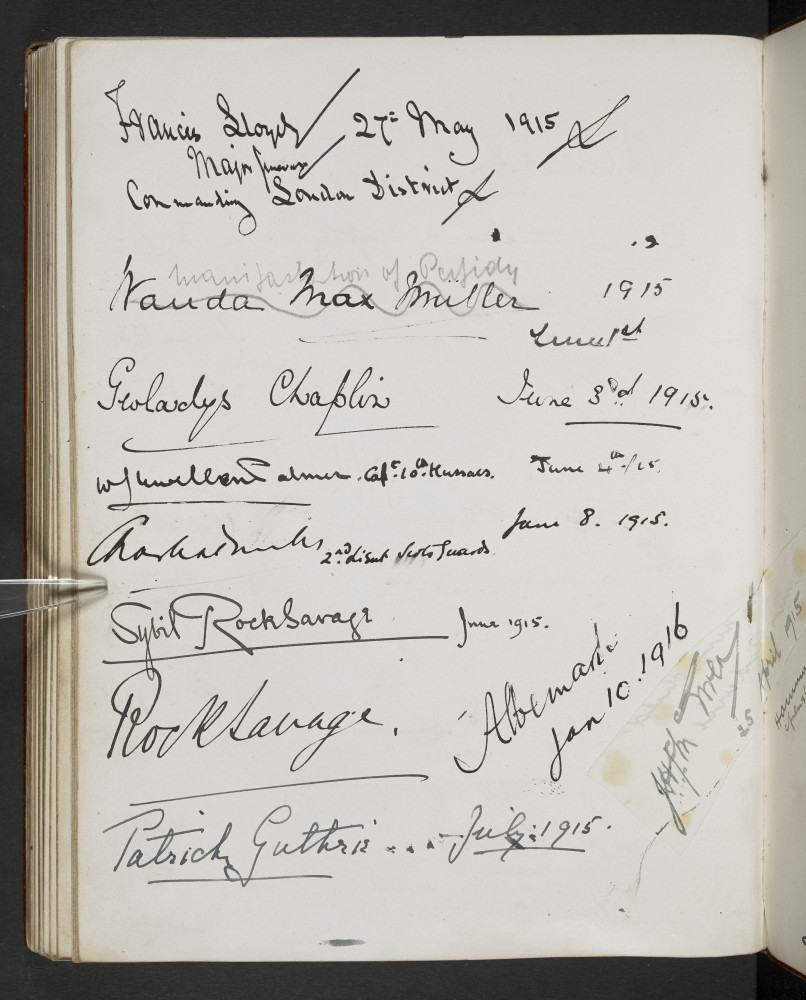 Francis Lloyd 27th May 1915
Major General
Commanding London District
manifestation of Perfidy
Wanda Max Müller 1915
June 1st
Gwladys Chaplin June 3rd 1915.
Palmer. Capt. 10th Hussars. June 4th/15.
2nd Lieut Scots Guards. June 8. 1915.
Sybil RockSavage June 1915.
Rocksavage.
Albemarle
Jan 10. 1916
Patrick Guthrie... July. 1915.
25 April 1915